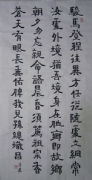 駿馬登程往異方任從隨處立綱常
汝處外境猶吾境身在他鄉即故鄉
朝夕勿忘親命語晨昏須薦祖宗香
蒼天有眼長垂佑俾我兒孫總熾昌